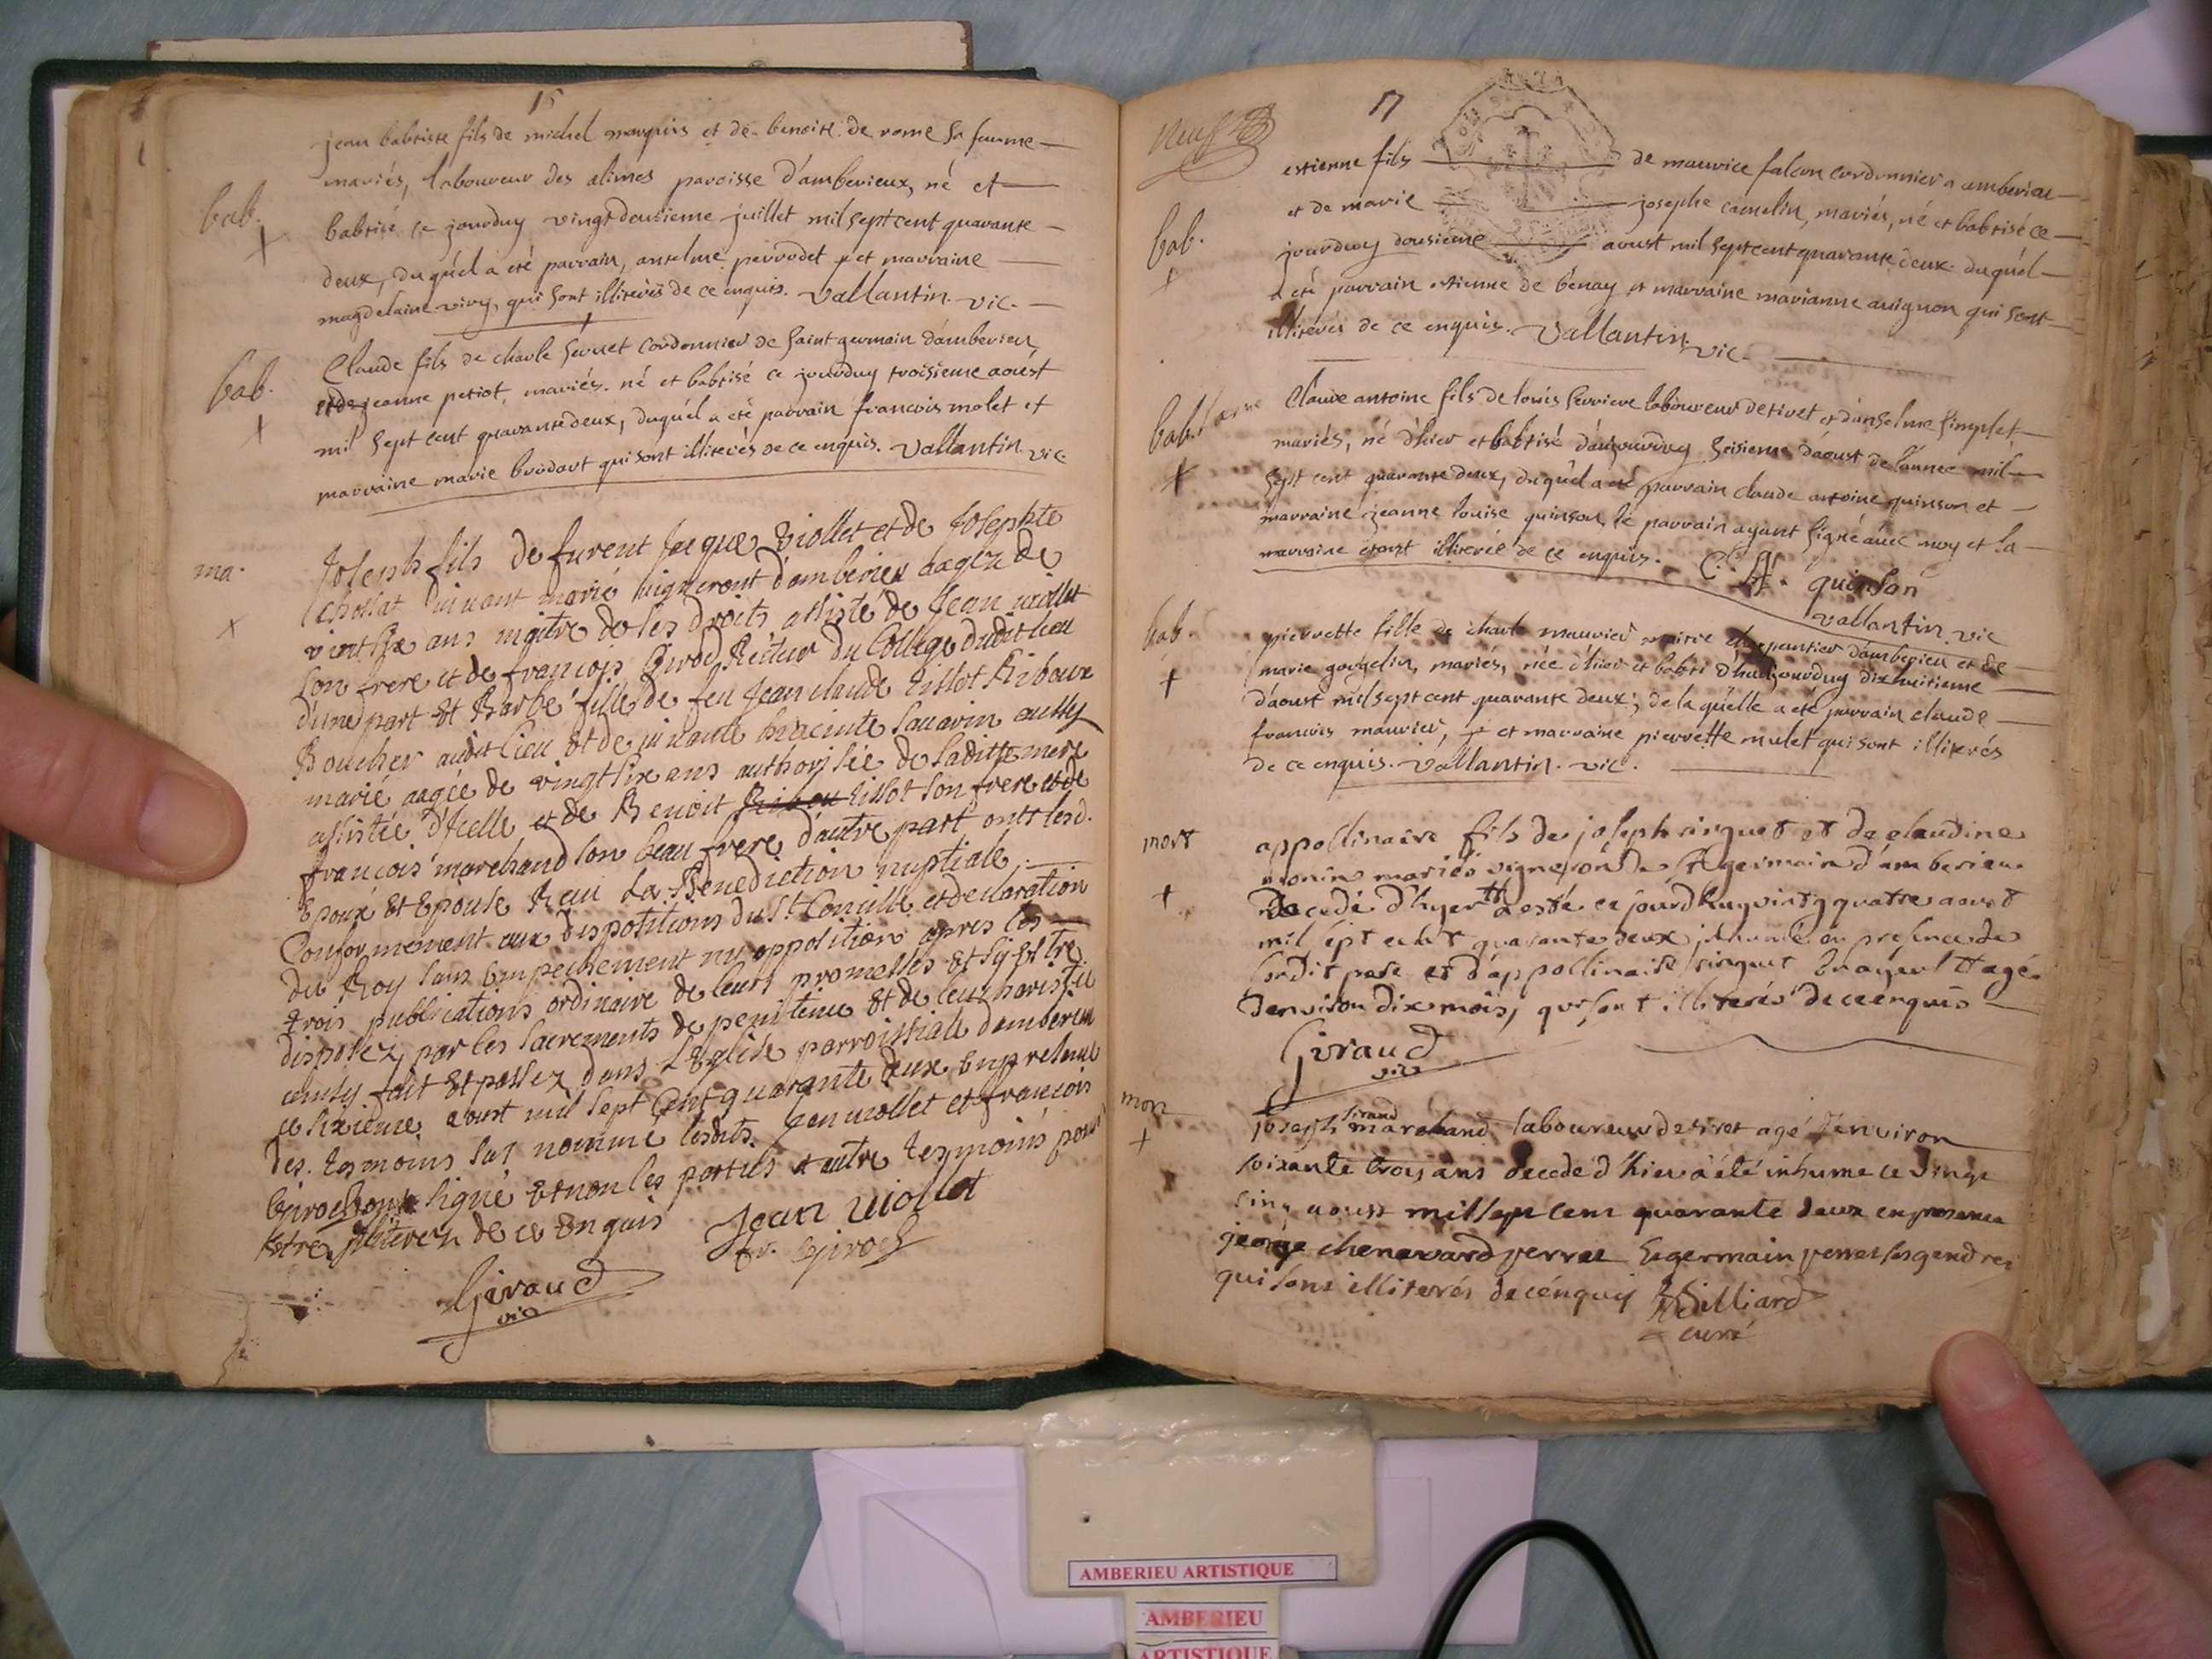 15
jean babtiste fils de michel marquis et de benoite de rome sa femme
mariés, laboureur des alimes paroisse d'amberieux, né et
bab.
babtisé ce jourduy vingtdeusieme juillet mil sept cent quarante
deux, duquel a eté parrain, anselme perrodet et marraine
magdelaine vivy, qui sont illiterés de ce enquis. Vallantin. vic.
bab.
Claude fils de charle servet cordonnier de saint germain damberieu
et de jeanne petiot, mariés. né et babtisé ce jourduy troisieme aoust
mil sept cent quarante deux, duquel a eté parrain francois molet et
marraine marie brodart qui sont illiterés de ce enquis. Vallantin vic
ma.
Joseph fils de furent Jacque Viollet et de Josephte
chossat vivant marié vigneront d'amberieu aagéz de
vint six ans maitre de ses droits assisté de Jean viollet
son frere et de francois Girod Recteur du College dudit lieu
d'une part Et Barbe fille de feu Jean claude tissot Riboux
Boucher audit lieu Et de vivante hiacinte Savarin aussy
marié aagée de vingt six ans authorisée de saditte mere
assistée d'Icelle et de Benoit tissot son frere et de
francois marchand son beau frere d'autre part ont lesd.
Epoux Et Epouse Receu La Benediction nuptiale
Conformement aux dispositions du St Concille et declaration
du Roy sans Empechement ny opposition apres les
trois publications ordinaire de leurs promesses Et sy Estre
disposez par les sacrements de penitence Et de leucharistie
ainsy fait Et passez dans L'Eglise parroissiale damberieu
ce sixieme aoust mil sept Cent quarante deux En presence
des tesmoins sus nommé lesdits Jean viollet et francois
Girod ont signé Et non les parties et autre tesmoins pour
Estre Illiterez de ce Enquis
Jean Viollet
fr. Girod
Giraud
vic
17
neuf
estienne fils de maurice falcon cordonnier a amberieu
et de marie josephe camelin, mariés, né et babtisé ce
bab.
jourduy dousieme aoust mil sept cent quarante deux duquel
a eté parrain estienne de benay et marraine marianne avignon qui sont
illiterés de ce enquis. Vallantin. vic.
bab.
Claude antoine fils de louis serriere laboureur de tiret et d'anselme simplet
mariés, né d'hier et babtisé d'aujourduy seisieme d'aoust de l'année mil
sept cent quarante deux, duquel a eté parrain claude antoine quinson et
marraine jeanne louise quinson, le parrain ayant signé avec moy et la
marraine etant illiterée de ce enquis. C. A. quinson
Vallantin vic
bab.
pierrette fille de charle mauvier maitre charpentier d'amberieu et de
marie goujelin, mariés, née d'hier et babti d'haujourduy dixhuitieme
d'aoust mil sept cent quarante deux; de laquelle a eté parrain claude
francois mauvier, et marraine pierrette mulet qui sont illiterés
de ce enquis. Vallantin. vic.
mort
appollinaire fils de joseph sirguet et de claudine
monin mariés vigneron de St germain d'amberieu
decedé d'hyer a esté ce jourd'huy vingt quatre aoust
mil sept cent quarante deux inhumé en presence de
sondit pere et d'appollinaire sirguet agé
denviron dix mois, qui sont illiterés de ce enquis
Giraud
vic
mort
Joseph marchand laboureur de tiret agé d'environ
soixante trois ans decedé d'hier a été inhumé ce vingt
cinq aoust mil sept cent quarante deux en presence
george chenevard perret & germain perret ses gendres
qui sont illiterés de ce enquis Billiard
curé
AMBERIEU ARTISTIQUE
AMBERIEU
ARTISTIQUE